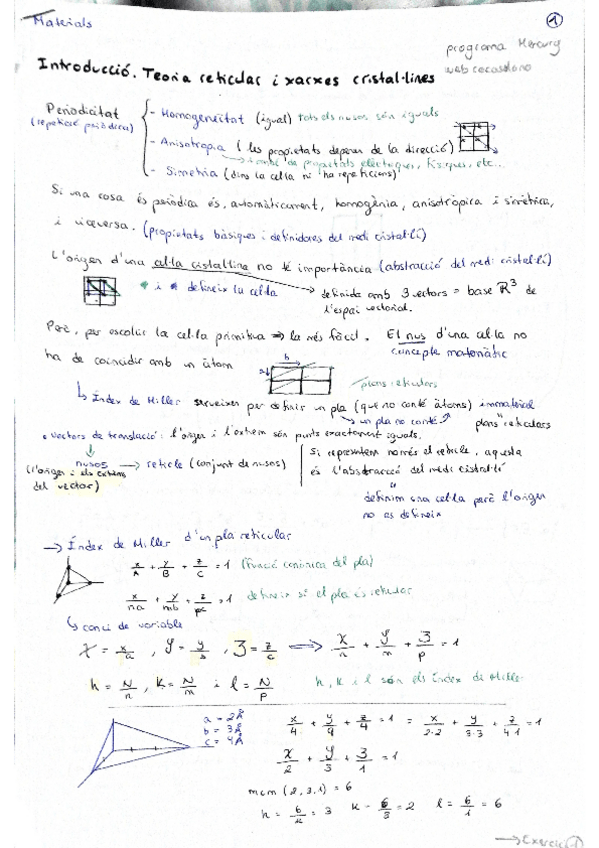 Materials
1
programa Mercury
web cocossolano
Introducció. Teoria reticular i xarxes cristal·lines
Periodicitat
(repetició periòdica)
- Homogeneïtat (igual) tots els nusos són iguals
- Anisotropia (les propietats depenen de la direcció)
propietats elèctriques, físiques, etc...
- Simetria (dins la cel·la hi ha repeticions)
Si una cosa és periòdica és, automàticament, homogènia, anisotròpica i simètrica,
i viceversa. (propietats bàsiques i definidores del medi cristal·lí)
L'origen d'una cel·la cristal·lina no té importància (abstracció del medi cristal·lí)
i defineix la celda
definida amb 3 vectors = base R³ de
l'espai vectorial.
Però, per escollir la cel·la primitiva → la més fàcil. El nus d'una cel·la no
ha de coincidir amb un àtom
concepte matemàtic
b
a
plans reticulars
Índex de Miller serveixen per definir un pla (que no conté àtoms) immaterial
un pla no conté
plans "reticulars
• vectors de translació: l'origen i l'extrem són punts exactament iguals.
nusos → reticle (conjunt de nusos)
(l'origen i els extrems
del vector)
Si representem només el reticle, aquesta
és l'abstracció del medi cristal·lí
"
definim una cel·la però l'origen
no es defineix
→ Índex de Miller d'un pla reticular
x/A + y/B + z/C = 1 (funció canònica del pla)
x/na + y/mb + z/pc = 1 defineix si el pla és reticular
canvi de variable
X = x/a , Y = y/b , Z = z/c ⟹ X/n + Y/m + Z/p = 1
h = N/n , K = N/m i l = N/p h, K i l són els índex de Miller
a = 2Å
b = 3Å
c = 4Å
x/4 + y/9 + z/4 = 1 = x/2·2 + y/3·3 + z/4·1 = 1
X/2 + Y/3 + Z/1 = 1
mcm (2,3,1) = 6
h = 6/2 = 3 K = 6/3 = 2 l = 6/1 = 6
→ Exercici 1